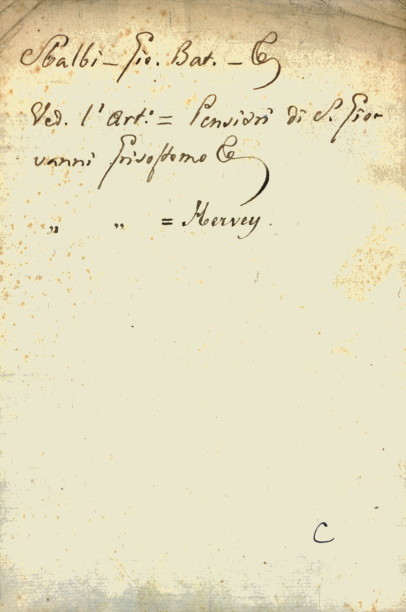 Balbi - Gio. Bat. - &
Ved. l' Art: = Pensieri di S. Gio-
vanni Grisostomo &
„ „ = Hervey.
C